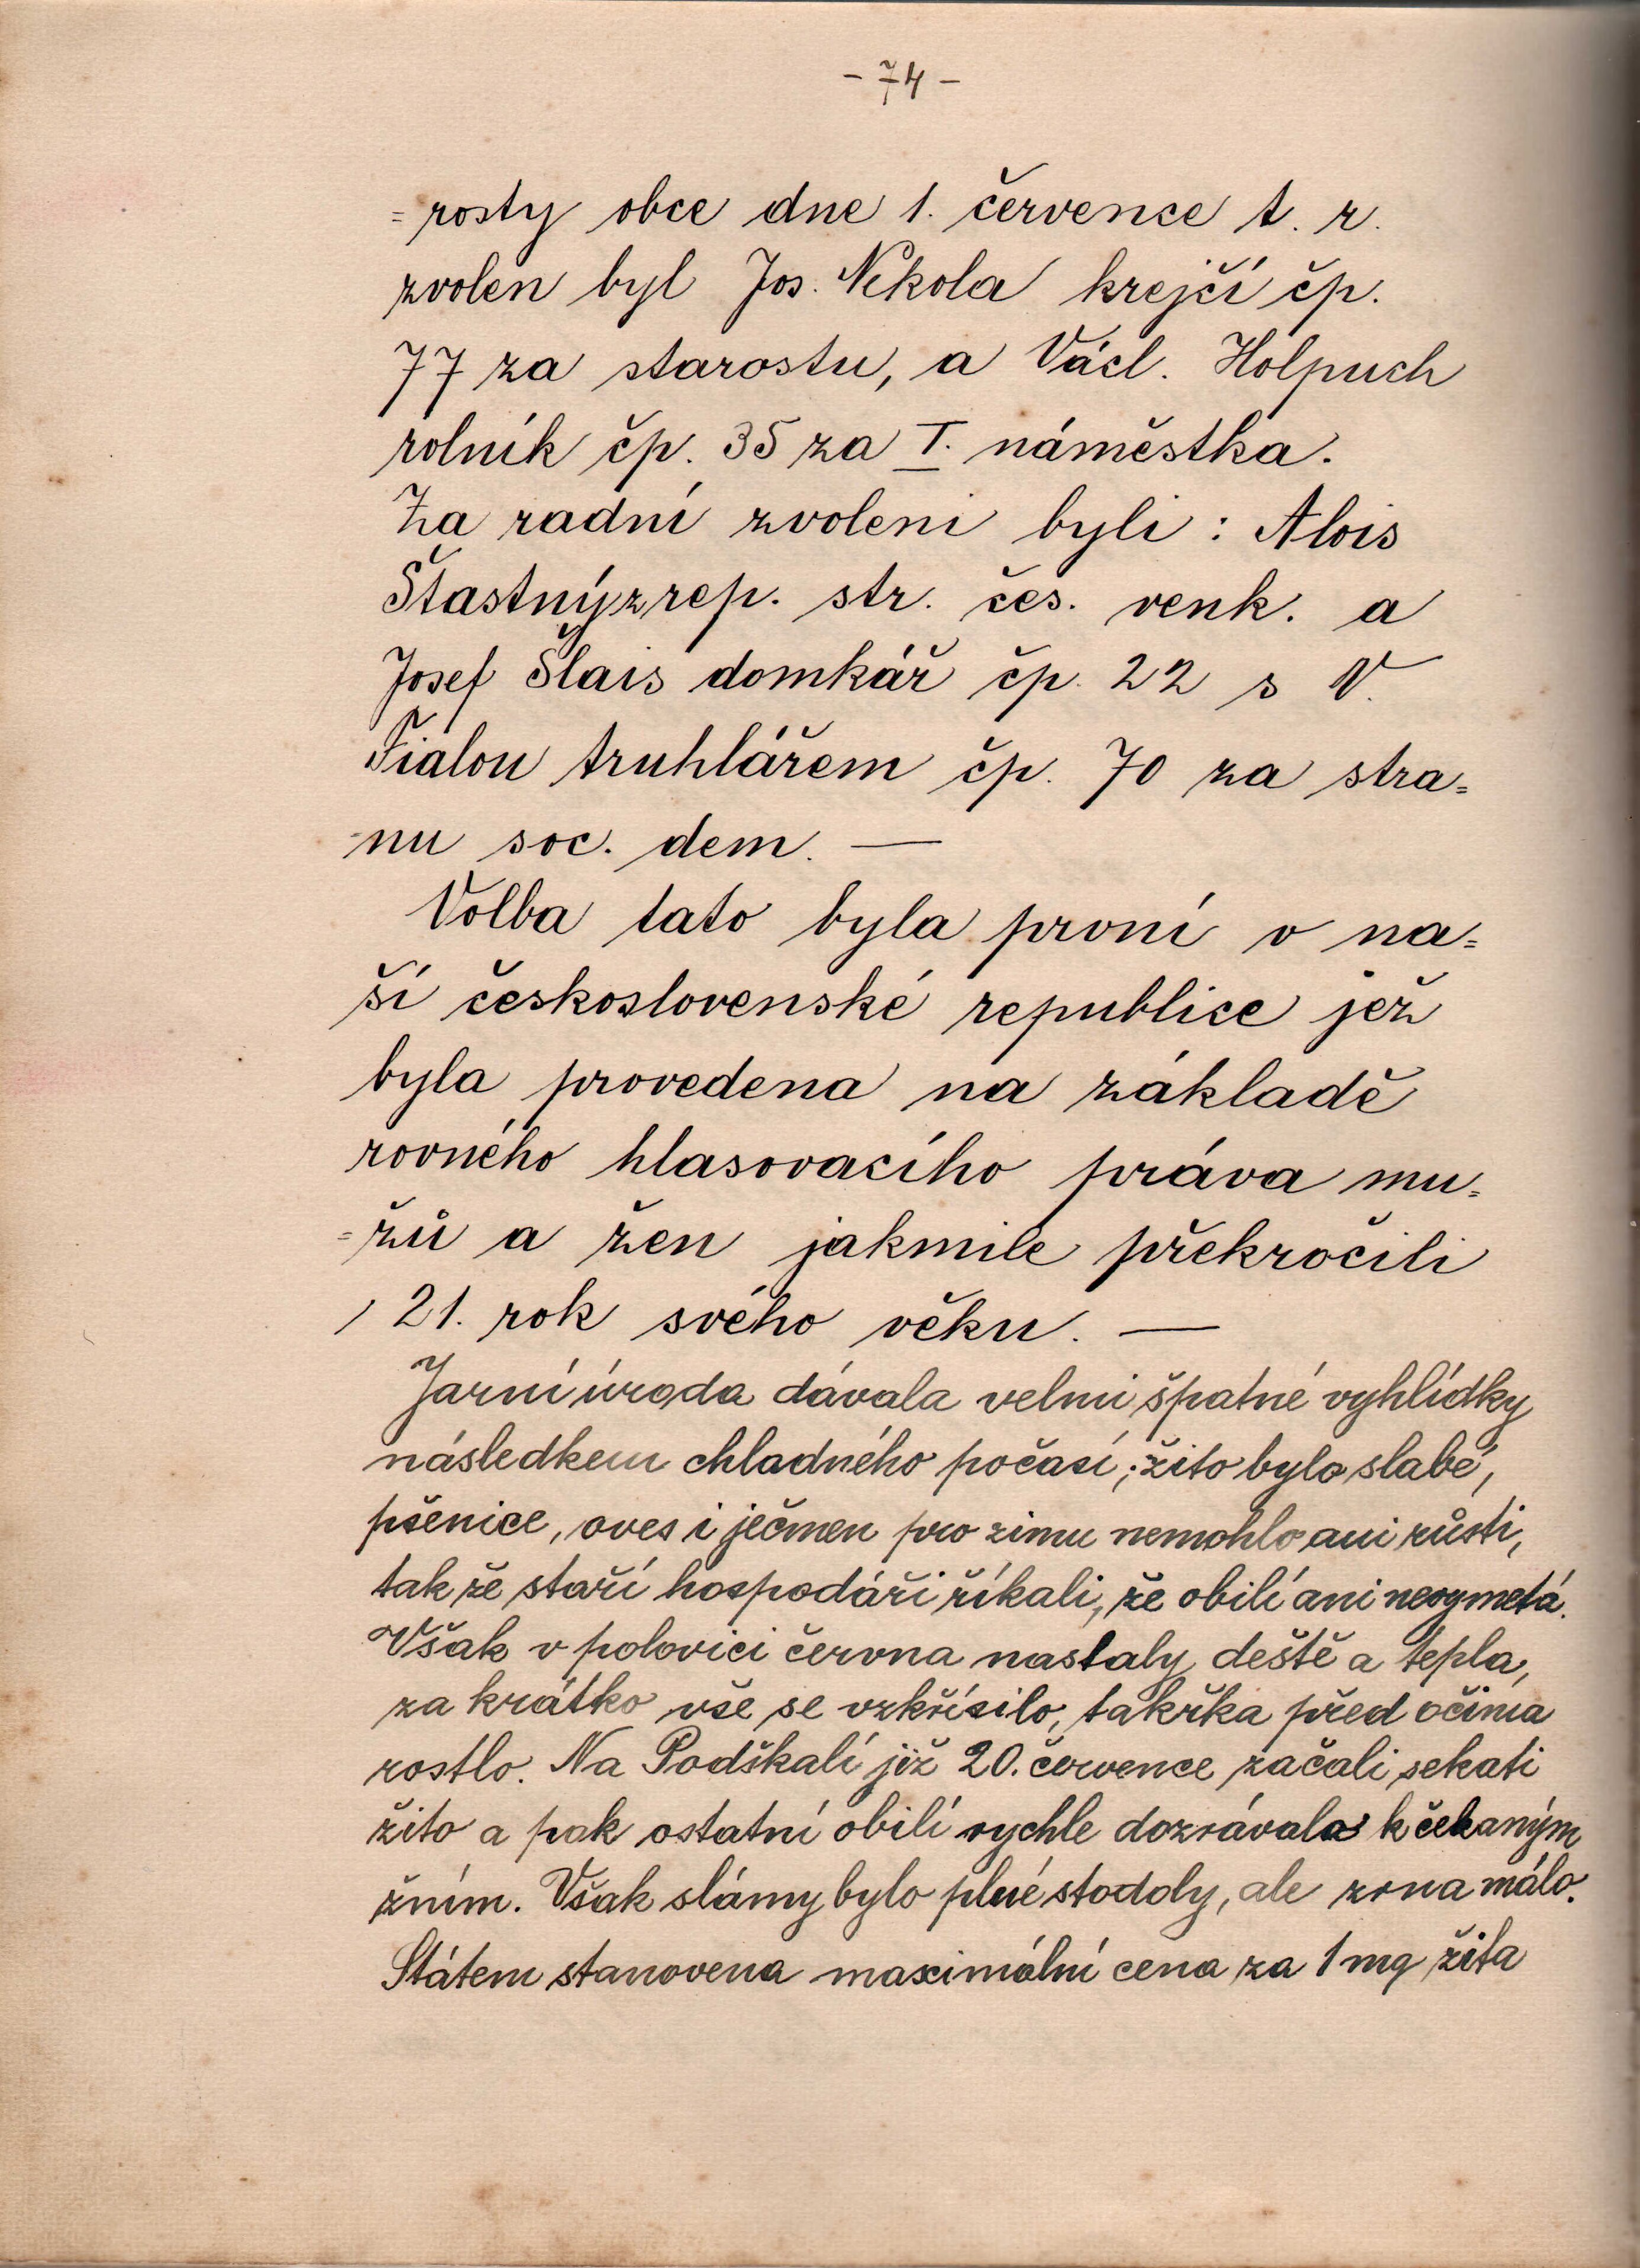 - 74 -
=rosty obce dne 1. července t. r.
zvolen byl Jos. Nekola krejčí čp.
77 za starostu, a Václ. Holpuch
rolník čp. 35 za I. náměstka.
Za radní zvoleni byli : Alois
Štastný z rep. str. čes. venk. a
Josef Šlais domkář čp. 22 s V.
Fialou truhlářem čp. 70 za stra=
-nu soc. dem. —
Volba tato byla první v na=
ší československé republice jež
byla provedena na základě
rovného hlasovacího práva mu=
=žů a žen jakmile překročili
21. rok svého věku. —
Jarní úroda dávala velmi špatné vyhlídky
následkem chladného počasí; žito bylo slabé,
pšenice, oves i ječmen pro zimu nemohlo ani růsti,
tak že staří hospodáři říkali, že obilí ani nevymetá.
Však v polovici června nastaly deště a tepla,
za krátko vše se vzkřísilo, takřka před očima
rostlo. Na Podškalí již 20. července začali sekati
žito a pak ostatní obilí rychle dozrávala k čekaným
žním. Však slámy bylo plné stodoly, ale zrna málo.
Státem stanovena maximální cena za 1 mq žita